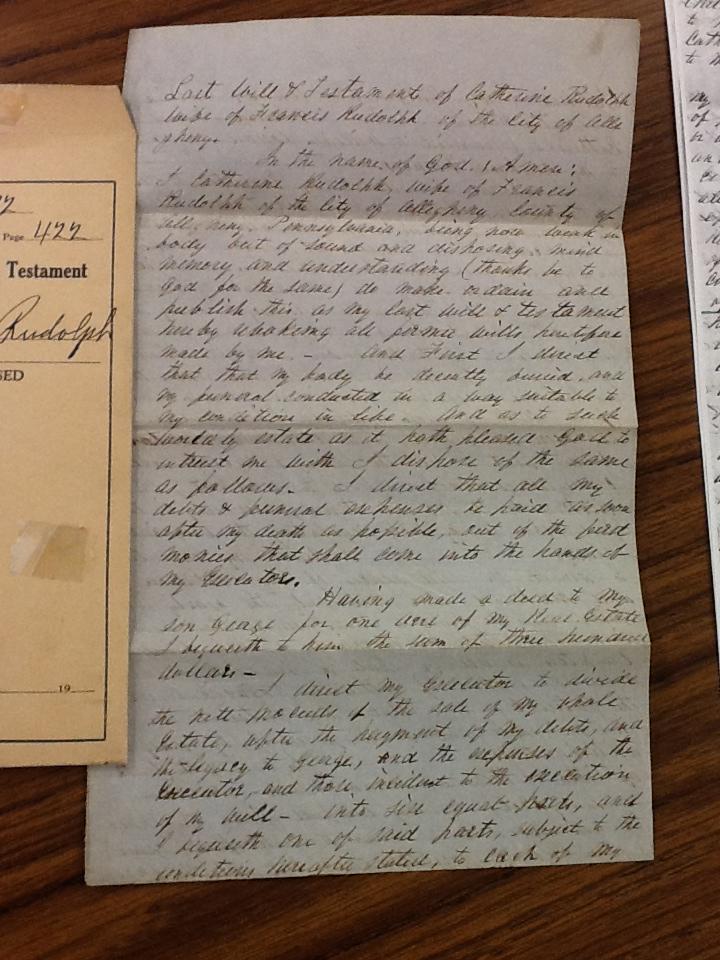 22
Page 422
Testament
Rudolph
SED
19
Last Will & Testament of Catherine Rudolph
wife of Francis Rudolph of the City of Alle
gheny.
In the name of God, Amen:
I Catherine Rudolph, wife of Francis
Rudolph of the City of Allegheny, County of
Allegheny, Pennsylvania, being now weak in
body but of sound and disposing mind
memory and understanding (thanks be to
God for the same) do make ordain and
publish this as my last will & testament
hereby revoking all former wills heretofore
made by me. - And First I direct
that that my body be decently buried, and
my funeral conducted in a way suitable to
my condition in life. And as to such
worldly estate as it hath pleased God to
intrust me with I dispose of the same
as follows. I direct that all my
debts & funeral expenses be paid as soon
after my death as possible, out of the first
monies that shall come into the hands of
my Executors.
Having made a deed to my
son George for one acre of my Real Estate
I bequeath to him the sum of three hundred
dollars -
I direct my Executor to divide
the nett proceeds of the sale of my whole
Estate, after the payment of my debts, and
the legacy to George, and the expenses of the
Executor, and those incident to the execution
of my will - into six equal parts, and
I bequeath one of said parts, subject to the
conditions hereafter stated, to each of my